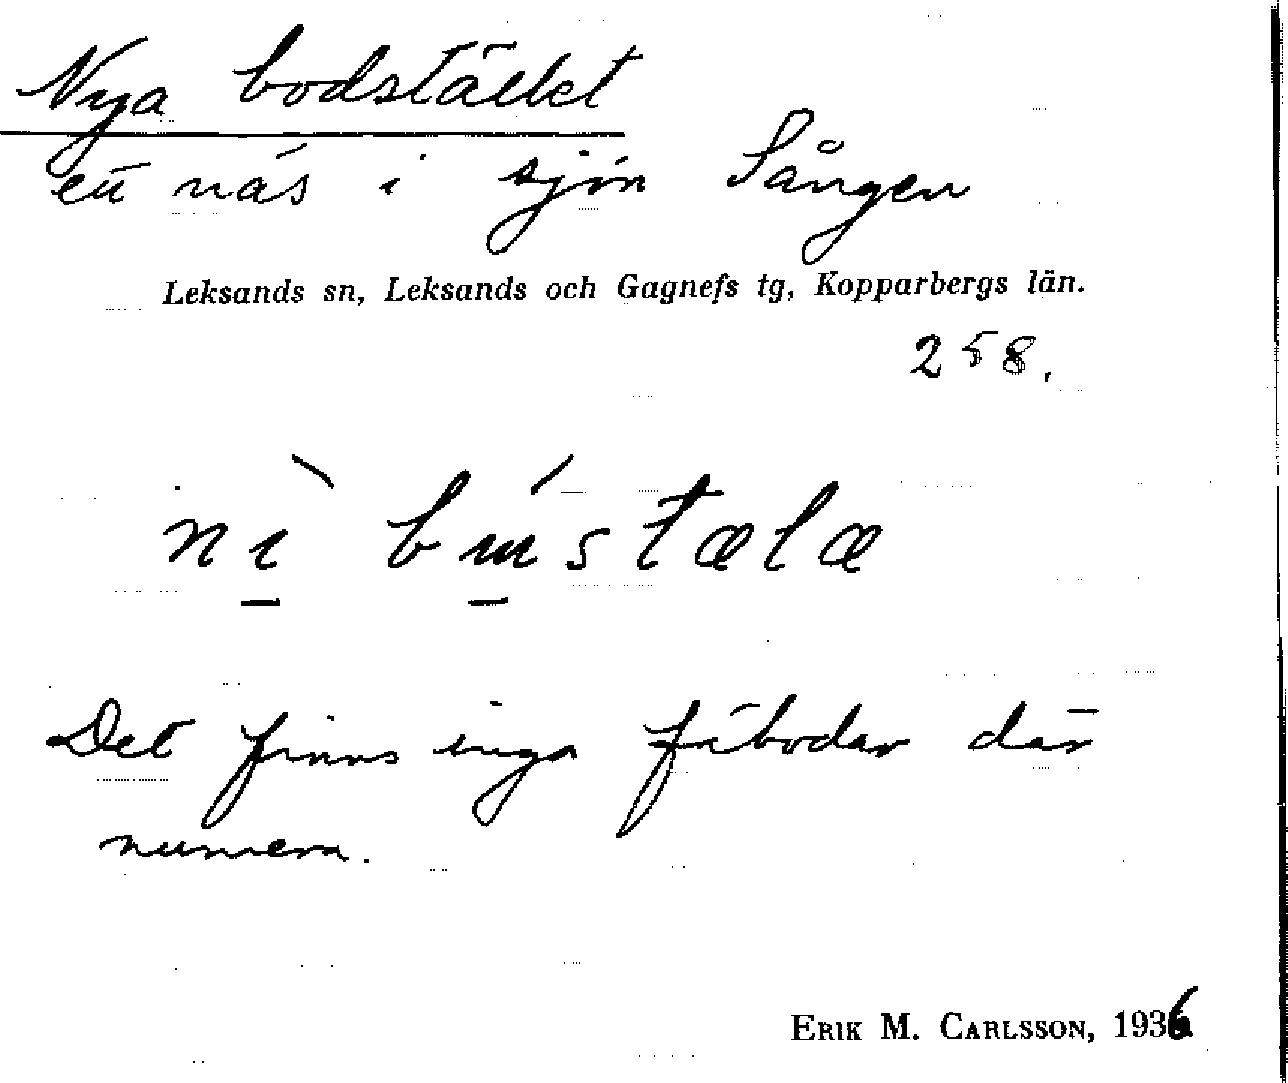 Nya bodstället
ett näs i sjön Sången
Leksands sn, Leksands och Gagnefs tg, Kopparbergs län.
258.
Det finns inga fäbodar där
numera.
ERIK M. CARLSSON, 1936